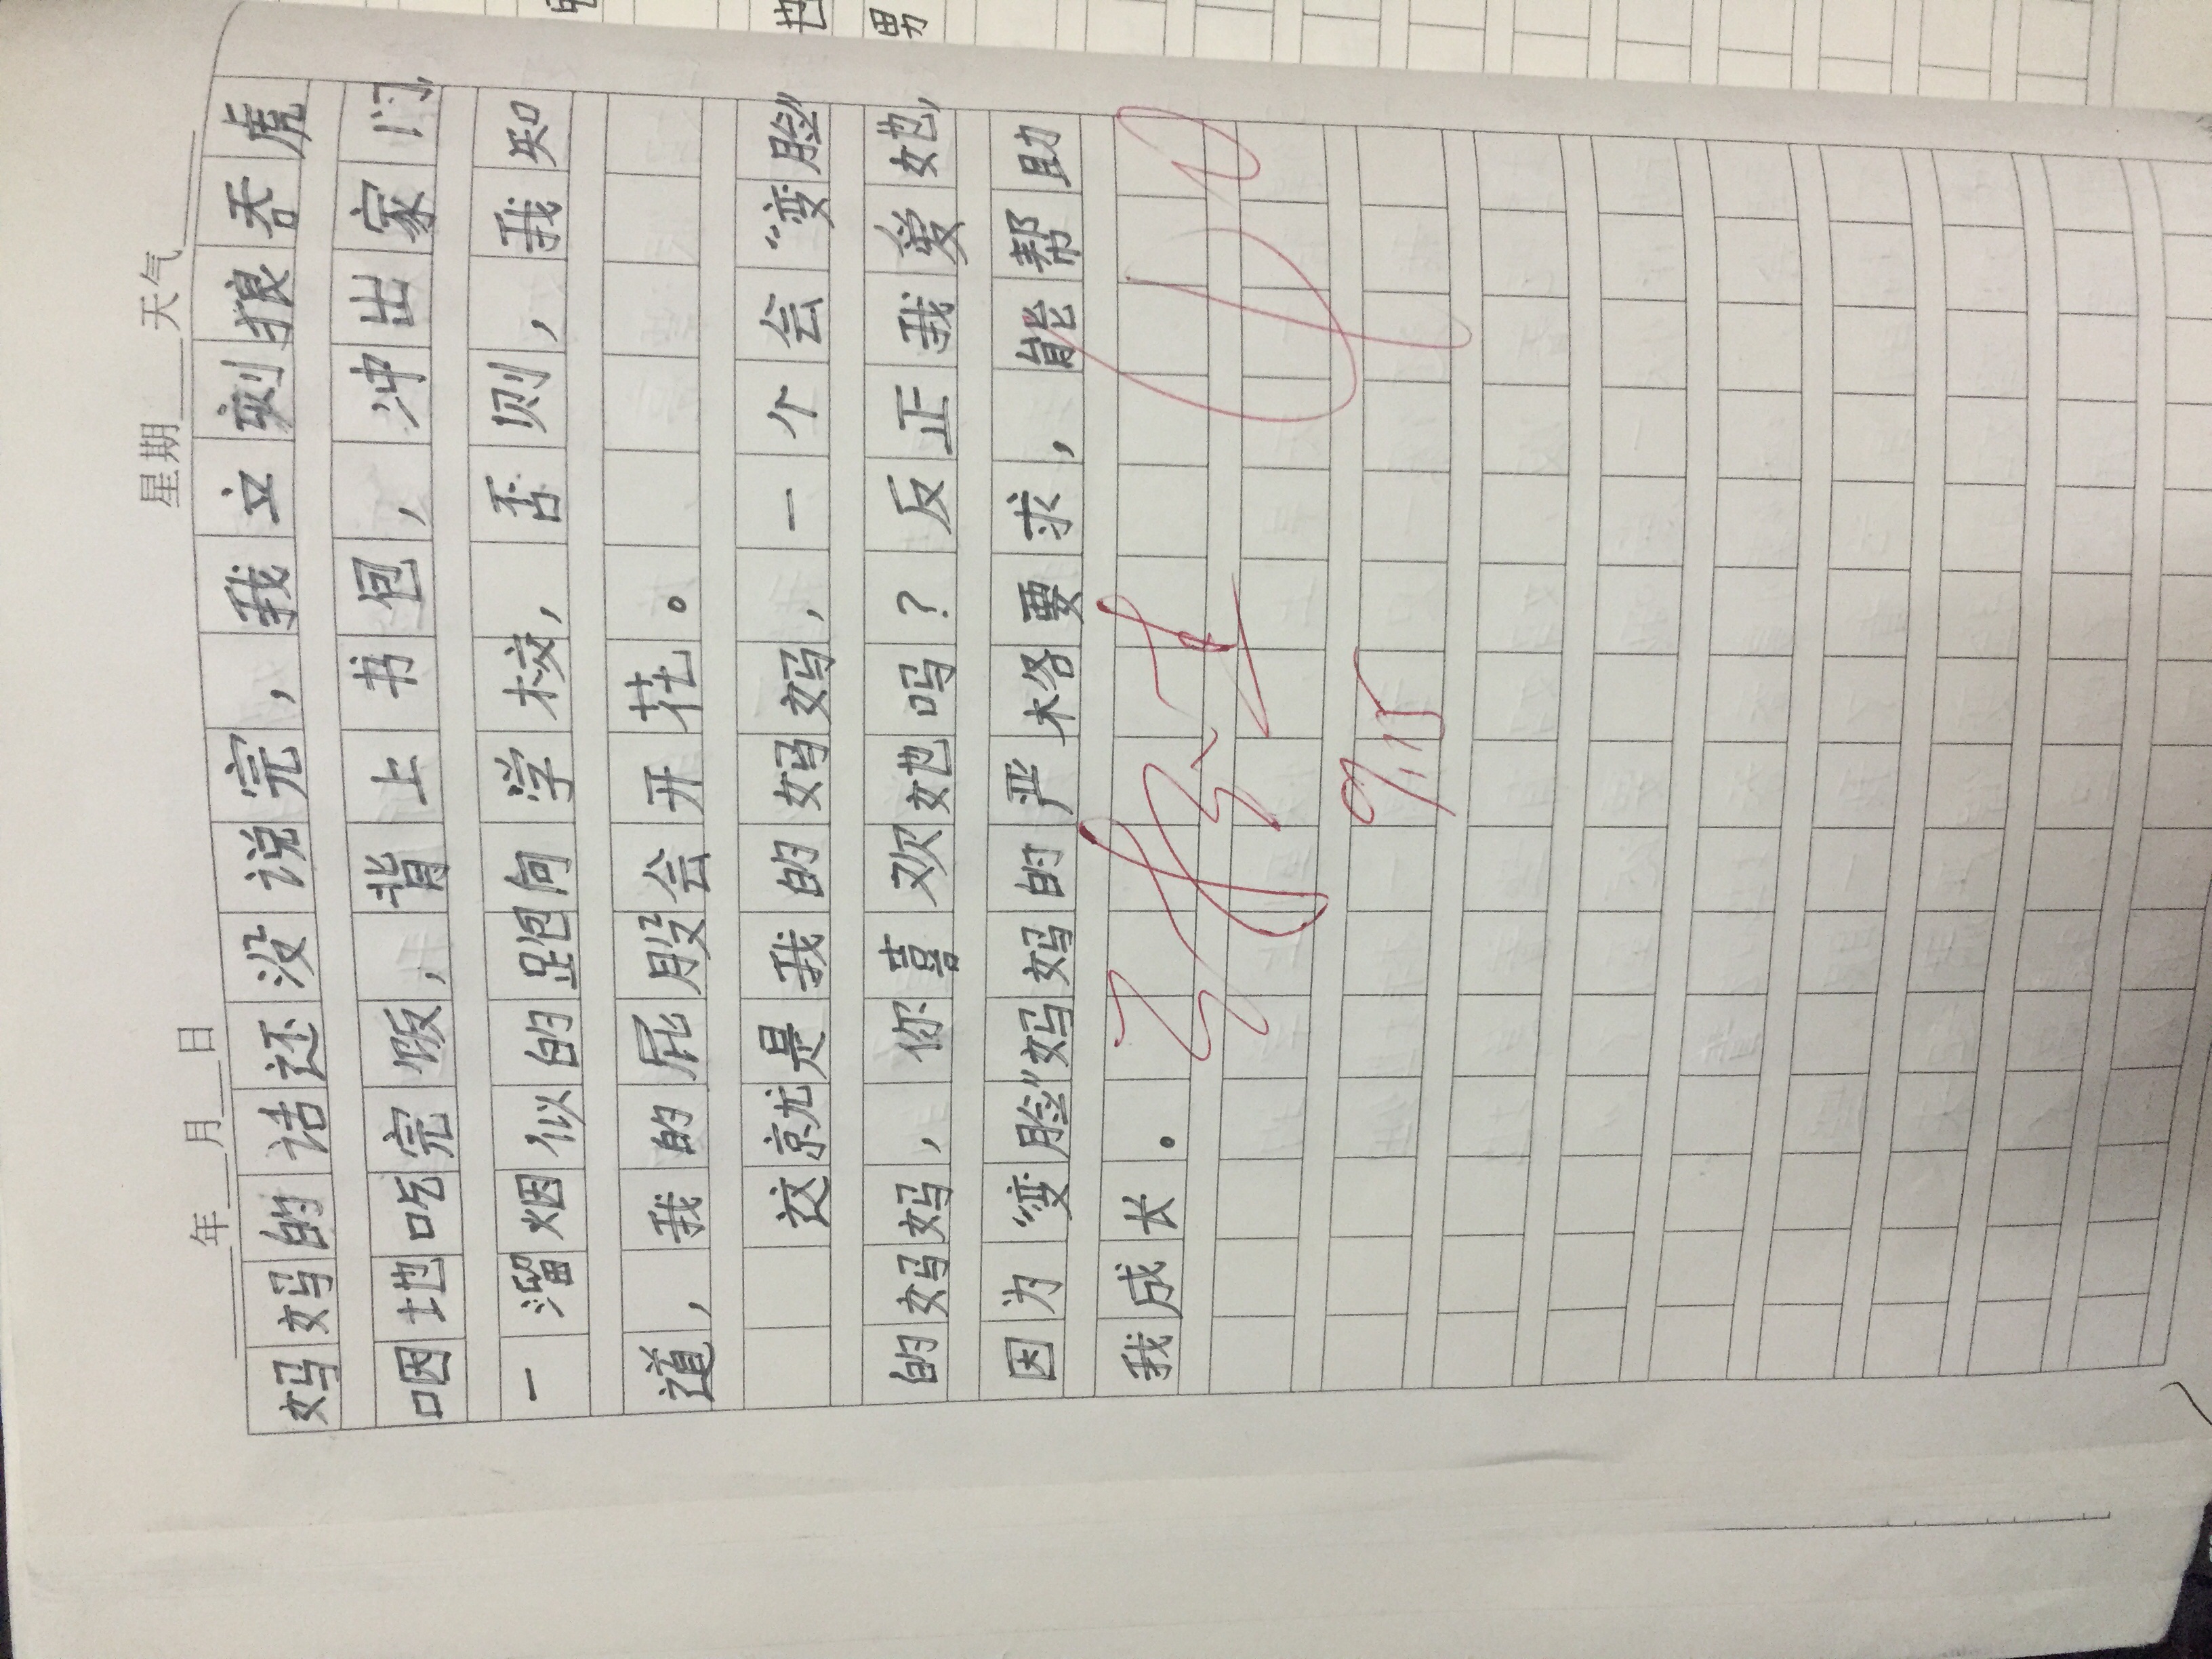 年 月 日 星期 天气
妈妈的话还没说完，我立刻狼吞虎
咽地吃完饭，背上书包，冲出家门，
一溜烟似的跑向学校，否则，我知
道，我的屁股会开花。
这就是我的妈妈，一个会“变脸”
的妈妈，你喜欢她吗？反正我爱她，
因为“变脸”妈妈的严格要求，能帮助
我成长。
9.15
也
男